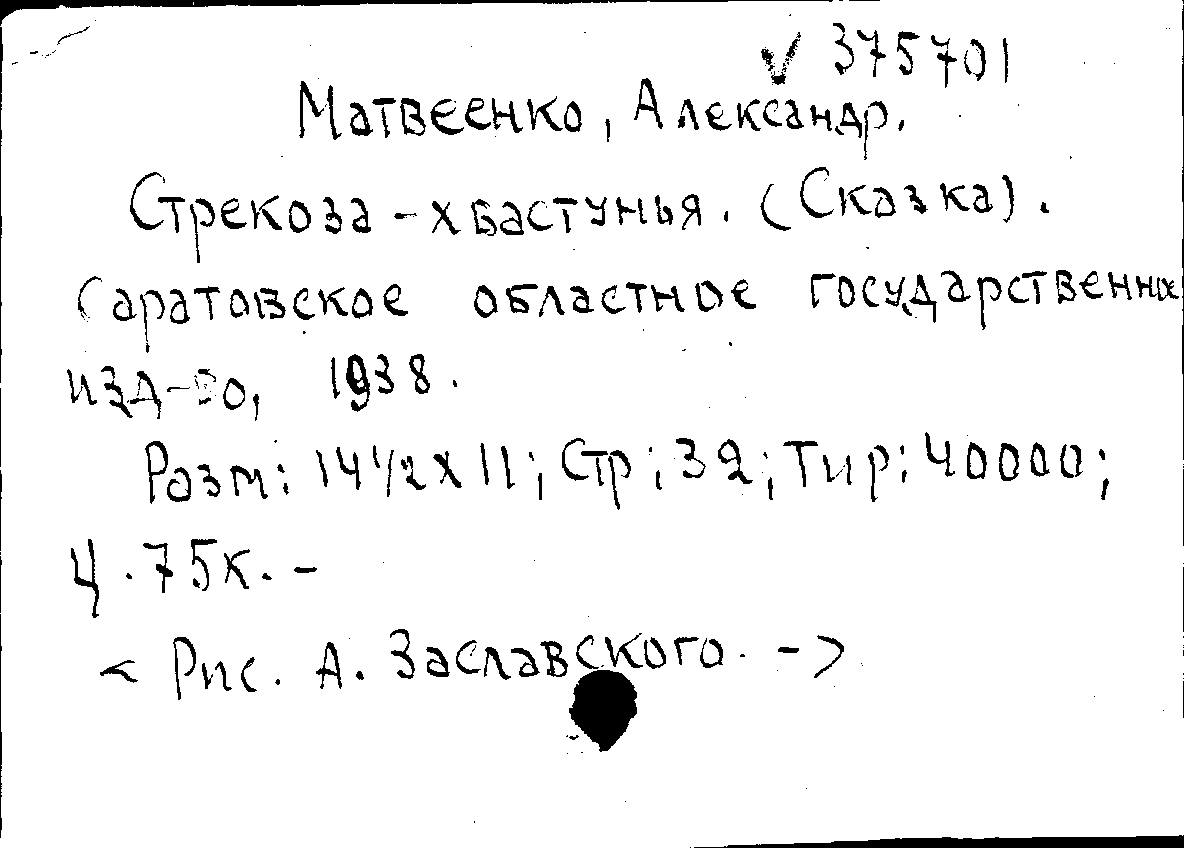 ✓ 375701
Матвеенко, Александр.
Стрекоза - хвастунья. (Сказка).
Саратовское областное государственное
изд-во, 1938.
Разм: 14 1/2 х 11; Стр: 32; Тир: 40000;
Ц. 75к. -
< Рис. А. Заславского. - >